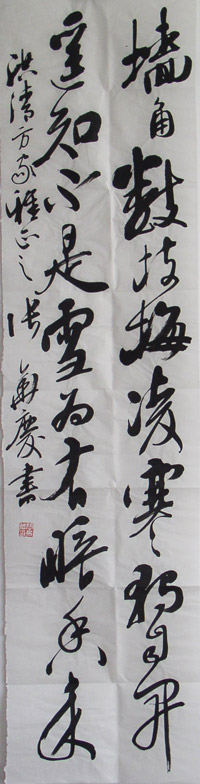 墙角数枝梅凌寒独自开
遥知不是雪为有暗香来
洪清方家雅正之 张 庆书